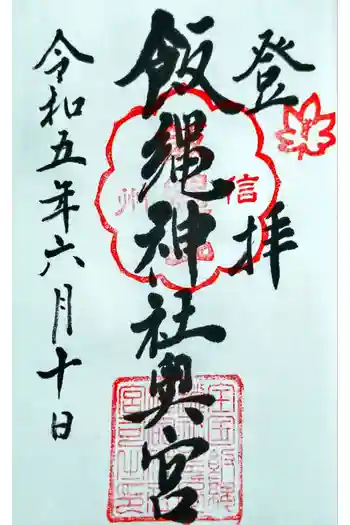 登拝
飯縄神社奥宮
信州
令和五年六月十日